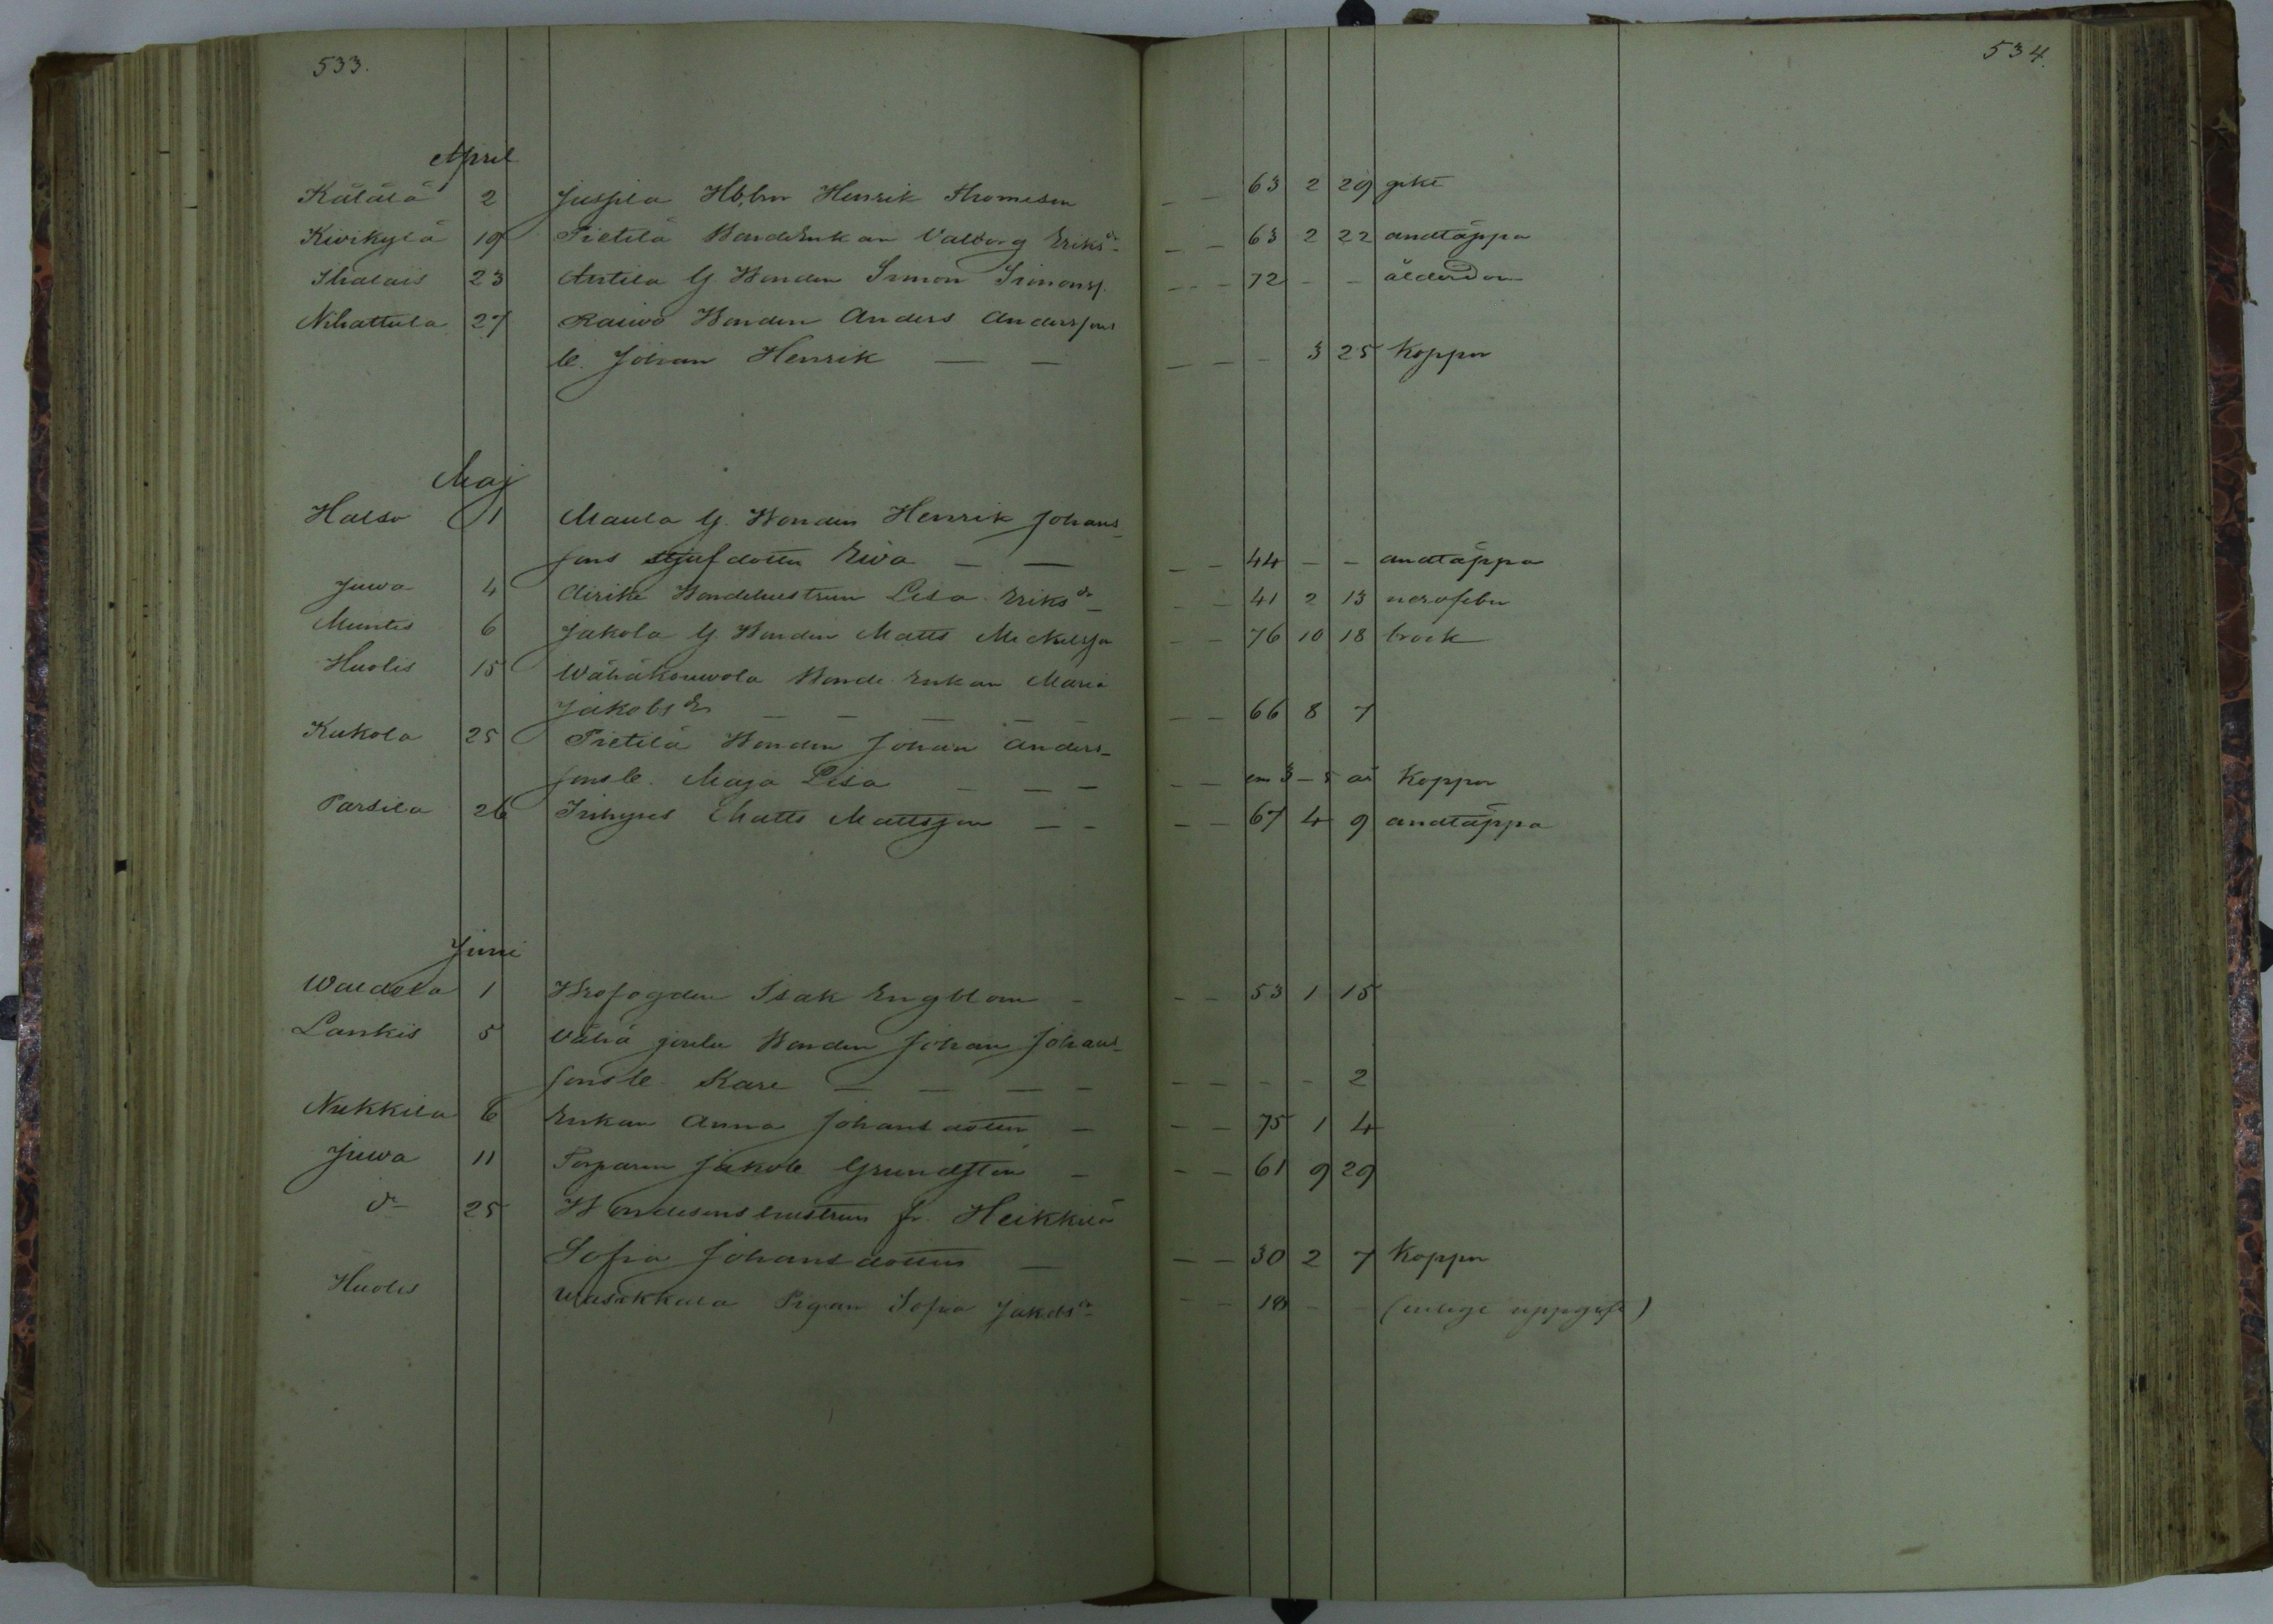 533.
534.
April
Kätälä 2 Jussila Hb,br Henrik Thomeson — — 63 2 29 gikt
Kivikylä 19 Pietilä BondeEnkan Valborg Eriksdr — — 63 2 22 andtäppa
Ihalais 23 Antila G. Bonden Simon Simonss. — — 72 – – ålderdom
Nihattula 27 Raiwo Bonden Anders Anderssons
b. Johan Henrik — — — — – 3 25 Koppor
Maj
Halso 1 Maula G. Bonden Henrik Johans-
sons styfdotter Eiva — — — — 44 – – andtäppa
Juwa 4 Eirike Bondehustrun Lisa Eriksdr — — 41 2 13 nervfeber
Muntis 6 Jakola G. Bonden Matts Mickelsson — — 76 10 18 brock
Huolis 15 Wähäkouwola Bonde Enkan Maria
Jakobsdr — — — — — — 66 8 7
Kukola 25 Pietilä Bonden Johan Anders-
sons b. Maja Lisa — — — — — em 3–5 år Koppor
Parsila 26 Inhyses Matts Mattsson — — — — 67 4 9 andtäppa
Juni
Waldola 1 Brofogden Isak Engblom — — — 53 1 15
Lankis 5 Vähä Bonden Johan Johans-
sons b. Kare — — — — — — – – 2
Nukkila 6 Enkan Anna Johansdotter — — — 75 1 4
Juwa 11 Torparen Jakob Grundsten — — — 61 9 29
do 25 Bondesonshustrun fr. Heikkilä
Sofia Johansdotter — — — 30 2 7 Koppor
Huolis Uusikkala Pigan Sofia Jakobsdr — — 18 – – (enligt uppgift)